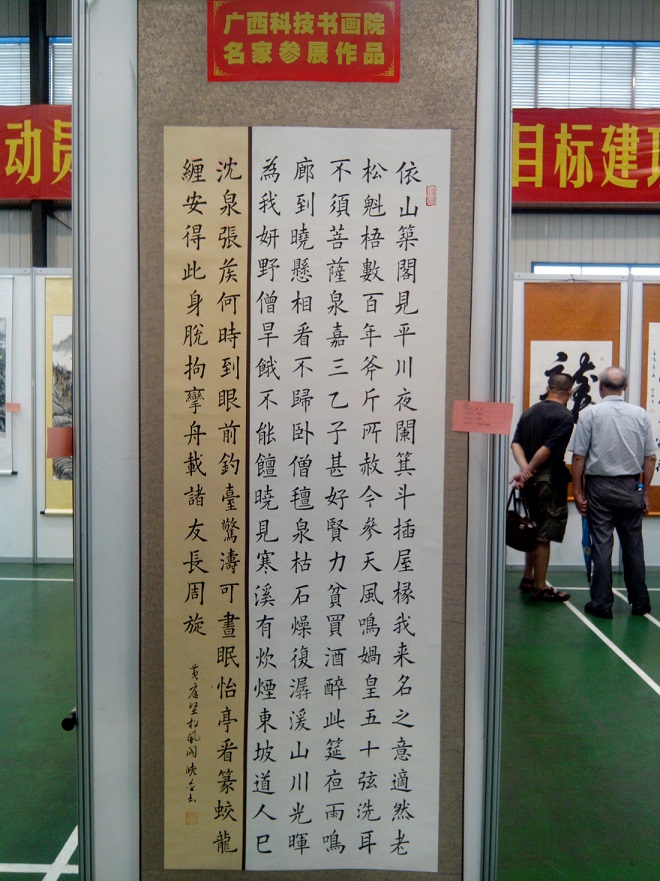 广西科技书画院
名家参展作品
动员
目标建
依山築閣見平川夜闌箕斗插屋椽我来名之意適然老
松魁梧數百年斧斤所赦今參天風鳴媧皇五十弦洗耳
不須菩薩泉嘉三乙子甚好賢力貧買酒醉此筵亱雨鳴
廊到曉懸相看不歸卧僧氊泉枯石燥復潺湲山川光暉
為我妍野僧旱餓不能饘曉見寒溪有炊煙東坡道人已
沈泉張矦何時到眼前釣臺驚濤可晝眠怡亭看篆蛟龍
纏安得此身脫拘攣舟載諸友長周旋
黄庭堅松風閣
龍